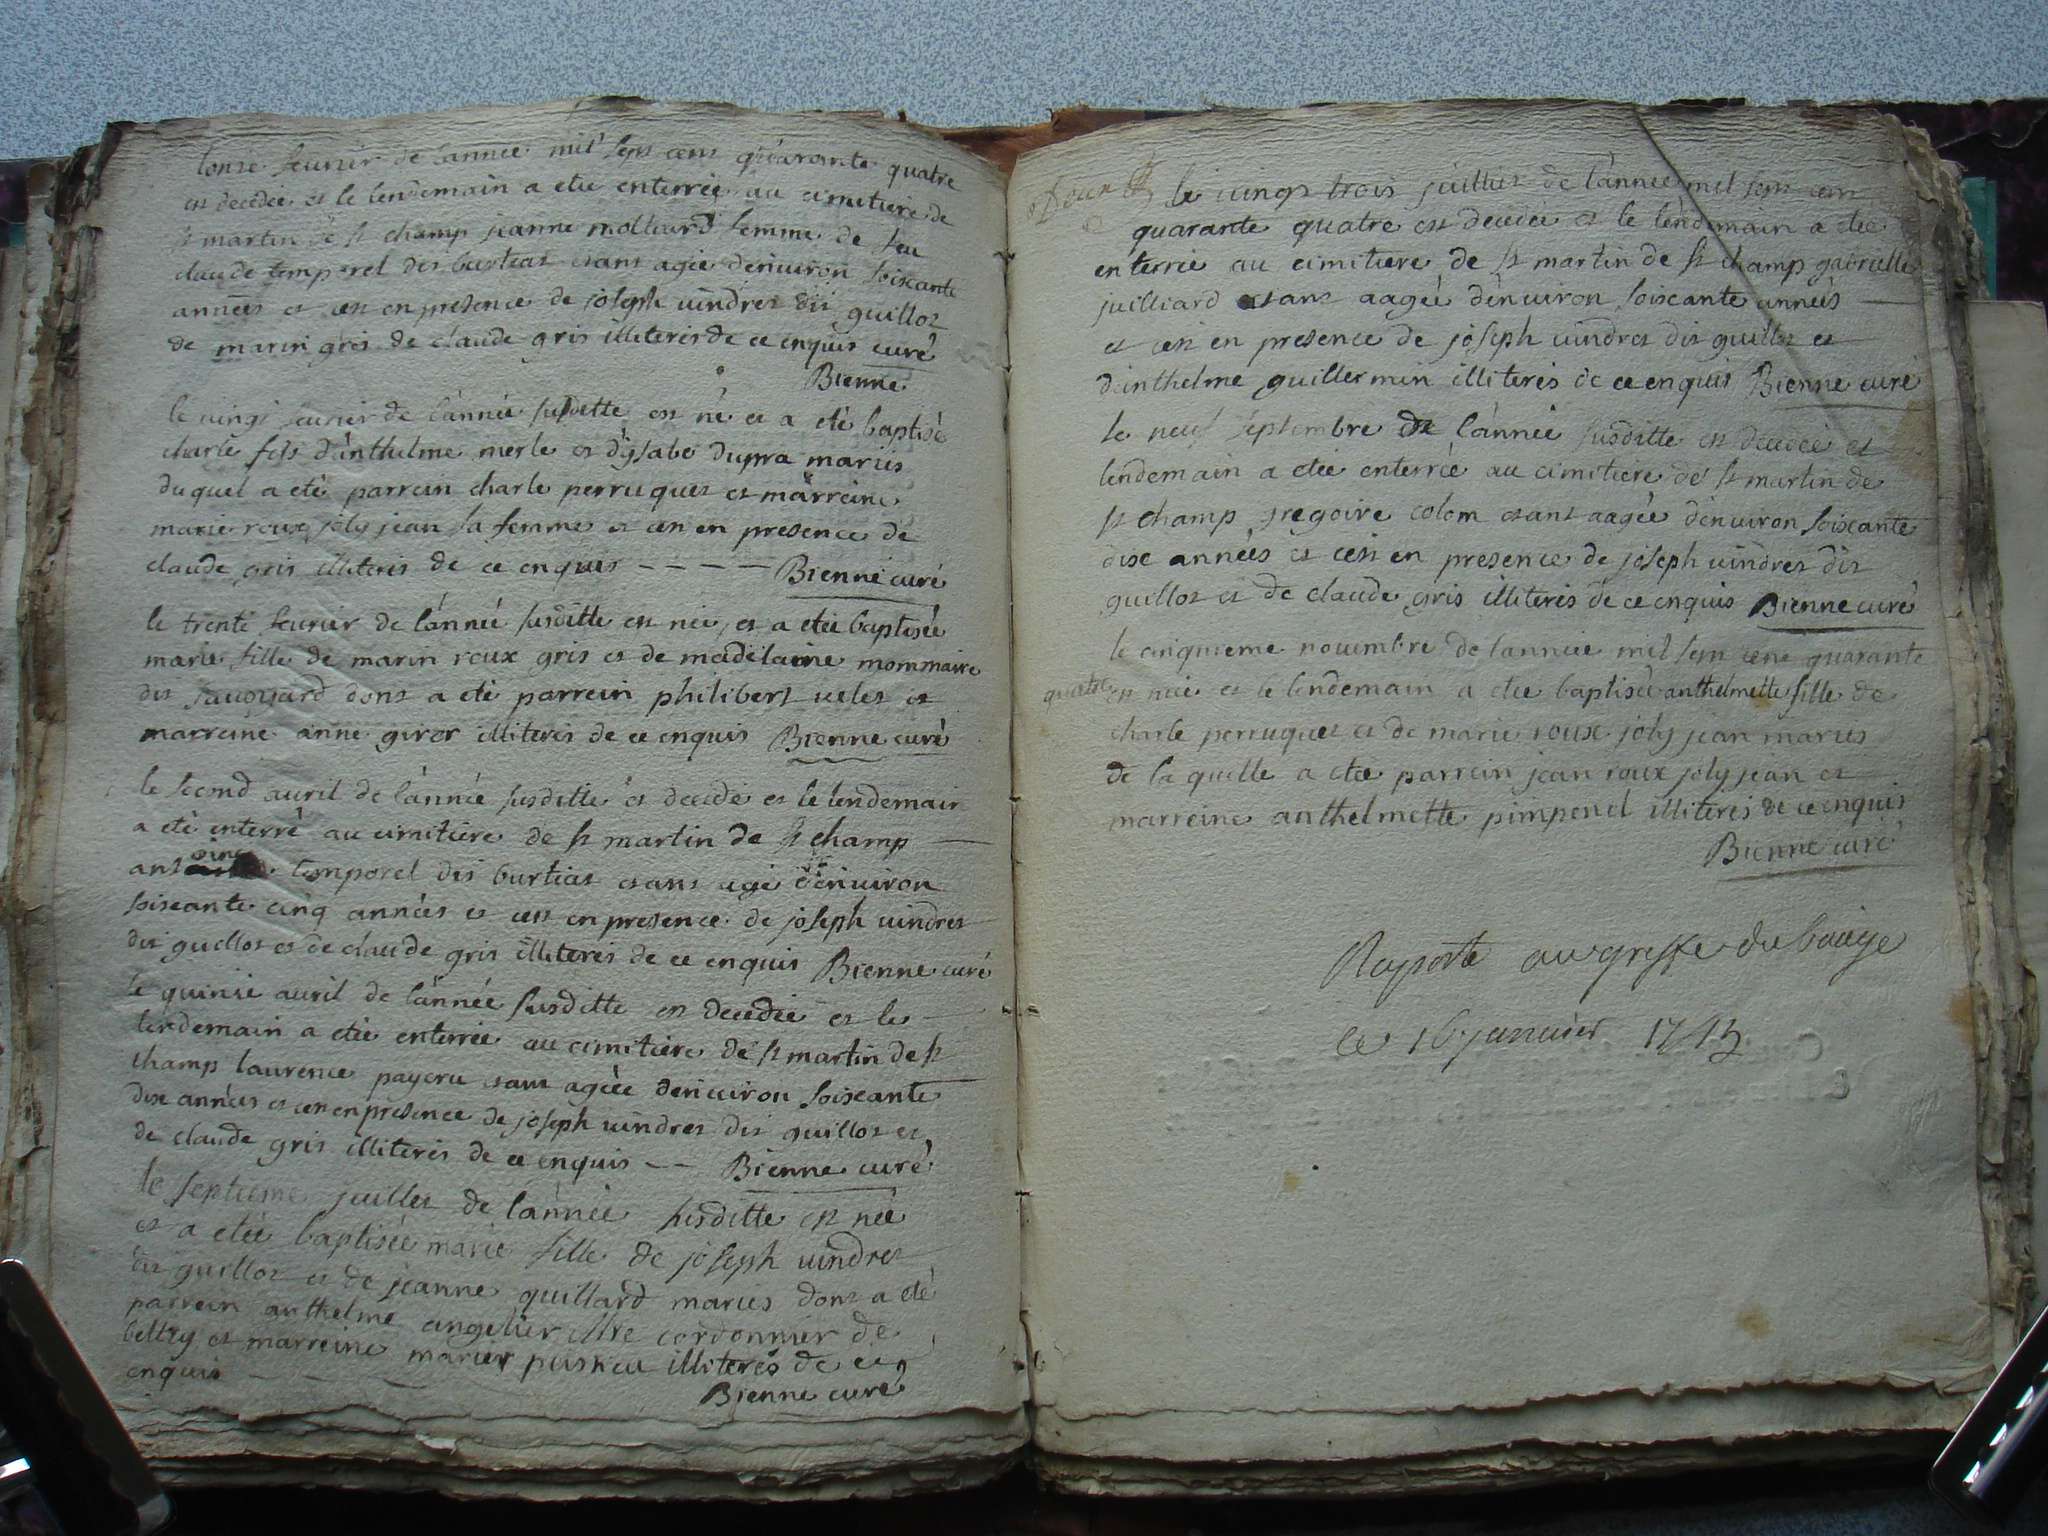 lonze feurier de lannee mil sept cens quarante quatre
est decedée et le lendemain a etée enterrée au cimitiere de
st martin de st champ jeanne molliard femme de feu
claude temporel dit burtiat etant agée denuiron soixante
années et cest en presence de joseph uindret dit guillot
de marin gris de claude gris illiterés de ce enquis curé
Bienne
le uingt feurier de lánnée susditte est né et a eté baptisé
charle fils dánthelme merle et dysabe dupra mariés
duquel a eté parrein charle perruquet et marreine
marie roux joly jean sa femme et cest en presence de
claude gris illiterés de ce enquis - - - - Bienne curé
le trente feurier de lánnée susditte est née et a etée baptisée
marie fille de marin roux gris et de madelaine mommaire
dit sauoyard dont a eté parrein philibert uelet et
marreine anne giror illiterés de ce enquis Bienne curé
le second auril de lánnée susditte est decedé et le lendemain
a eté enterré au cimitiere de st martin de st champ
antoine temporel dit burtiat etant agé denuiron
soixante cinq années et cest en presence de joseph uindret
dit guillot et de claude gris illiterés de ce enquis Bienne curé
le quinzé auril de lánnée susditte est decedée et le
lendemain a etée enterrée au cimitiere de st martin de st
champ laurence payeru etant agéee denuiron soixante
dix années et cest en presence de joseph uindret dit guillot et
de claude gris illiterés de ce enquis - - Bienne curé
le septieme juillet de lánnée susditte est née
et a etée baptisée marie fille de joseph uindret
dit guillot et de jeanne quillard mariés dont a eté
parrein anthelme angelier mre cordonnier de
belley et marreine marier illiterés de ce
enquis - - - Bienne curé
Pour le uingt trois juillet de lánnée mil sept cent
quarante quatre est decedée et le léndemain a etée
enterrée au cimitiere de st martin de st champ gabrielle
juilliard etant aagée dénuiron soixante années
et cest en presence de joseph uindret dit guillot et
dánthelme guillermin illiterés de ce enquis Bienne curé
le neuf septembre de lánnée susditte est decedé et
lendemain a etée enterrée au cimitiere de st martin de
st champ gregoire colom etant aagée dénuiron soixante
dix années et cest en presence de joseph uindret dit
guillot et de claude gris illiterés de ce enquis Bienne curé
le cinquieme nouembre de lannée mil sept cent quarante
quatre est née et le lendemain a etée baptisée anthelmette fille de
charle perruquet et de marie roux joly jean mariés
de la quelle a etée parrein jean roux joly jean et
marreine anthelmette pimpenel illiterés de ce enquis
Bienne curé
Raporté au greffe du bailge
ce 16 januier 1745